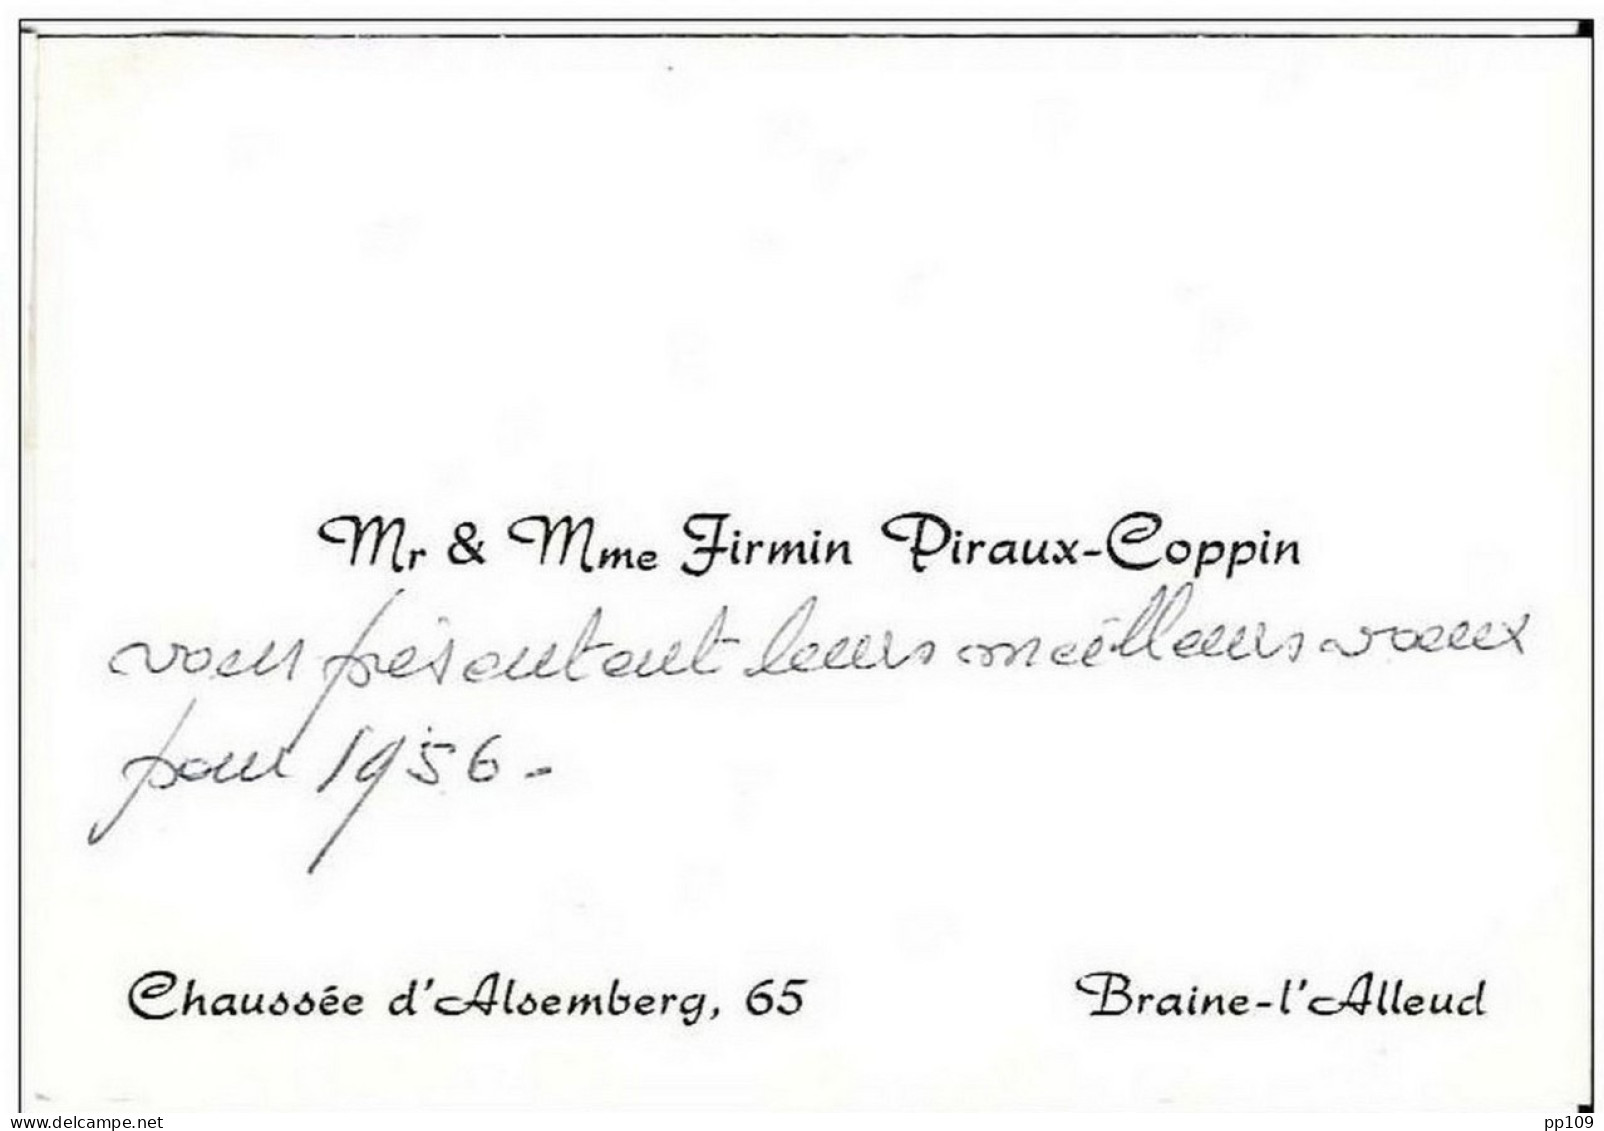 Mr & Mme Firmin Piraux-Coppin
vous présentent leurs meilleurs voeux
pour 1956 -
Chaussée d'Alsemberg, 65 Braine-l'Alleud
delcampe.net pp109